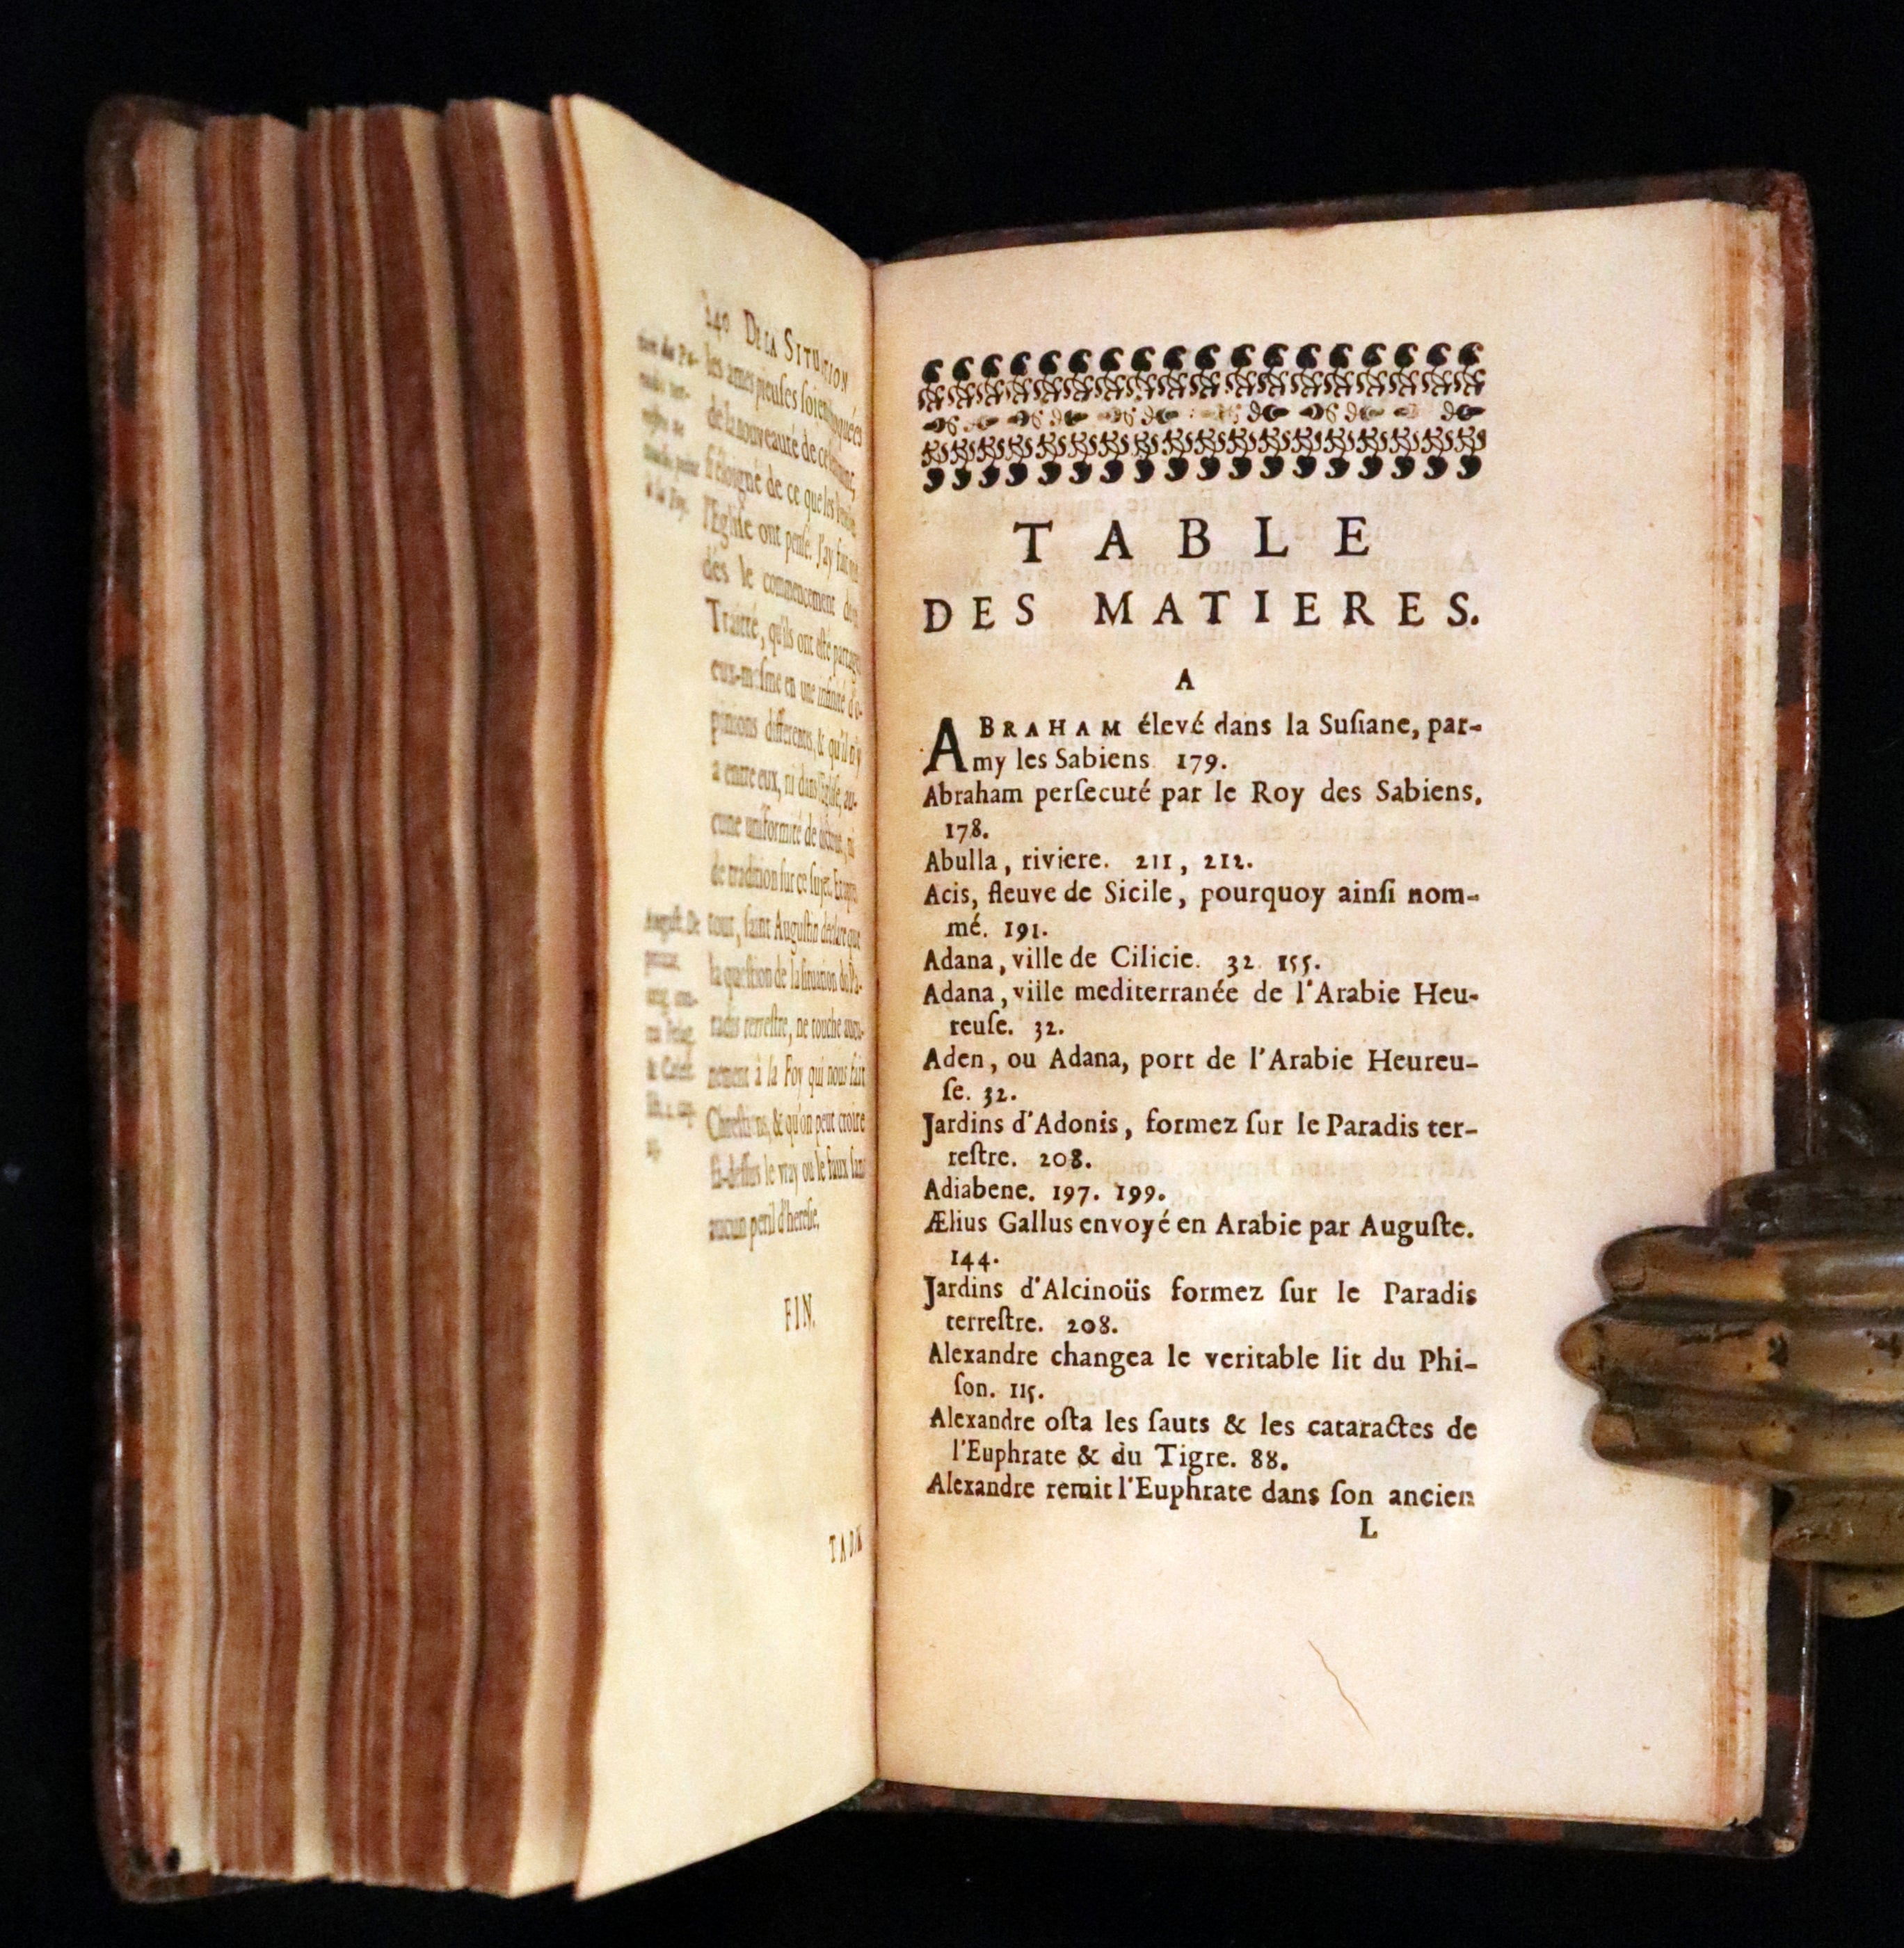 240 DE LA SITUATION
les ames pieuses soient
de la nouveauté de
si éloigné de ce que les
l'Eglise ont pensé. J'ay
dés le commencement
Traitté, qu'ils ont esté
eux-mesme en une infinité d'o-
pinions differentes, & qu'il n'y
a entre eux, ni dans l'Eglise, au-
cune uniformité de ni
de tradition sur ce sujet. Et
tout, saint Augustin declare que
la question de la situation du Pa-
radis terrestre, ne touche aucu-
nement à la Foy qui nous fait
Chrestiens, & qu'on peut croire
là-dessus le vray ou le faux sans
aucun peril d'heresie.
August. De
FIN.
TABLE
TABLE
DES MATIERES.
A
ABRAHAM élevé dans la Suſiane, par-
my les Sabiens 179.
Abraham perſecuté par le Roy des Sabiens,
178.
Abulla, riviere. 211, 212.
Acis, fleuve de Sicile, pourquoy ainſi nom-
mé. 191.
Adana, ville de Cilicie. 32. 155.
Adana, ville mediterranée de l'Arabie Heu-
reuſe. 32.
Aden, ou Adana, port de l'Arabie Heureu-
ſe. 32.
Jardins d'Adonis, formez ſur le Paradis ter-
reſtre. 208.
Adiabene. 197. 199.
Ælius Gallus envoyé en Arabie par Auguſte.
144.
Jardins d'Alcinoüs formez ſur le Paradis
terreſtre. 208.
Alexandre changea le veritable lit du Phi-
ſon. 115.
Alexandre oſta les ſauts & les cataractes de
l'Euphrate & du Tigre. 88.
Alexandre remit l'Euphrate dans ſon ancien
L